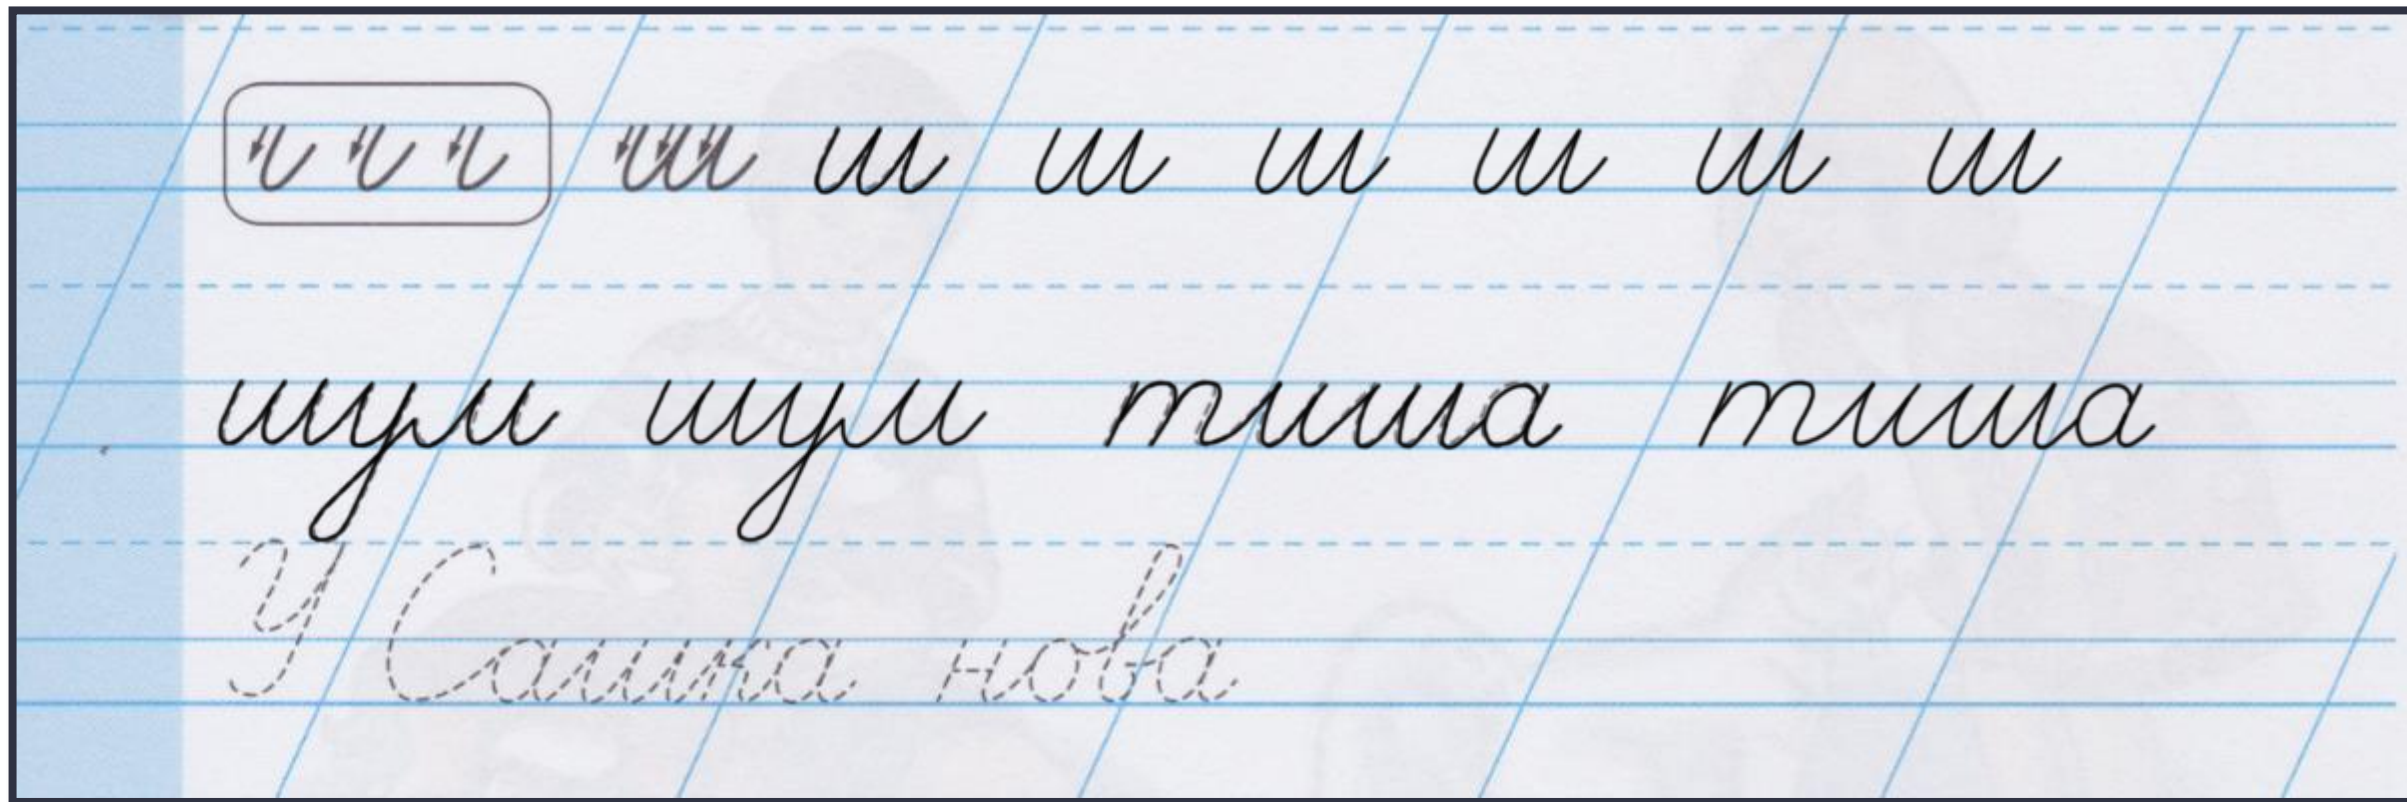 ш ш ш ш ш ш ш
шум шум тиша тиша
У Сашка нова